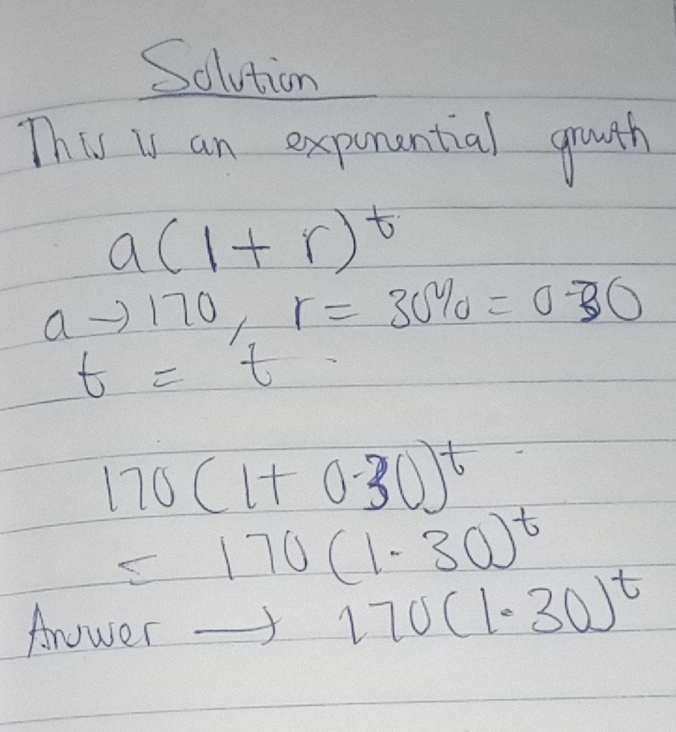 Solution
This is an exponential growth
a(1 + r)^t
a → 170, r = 30% = 0.30
t = t.
170(1 + 0.30)^t
= 170(1.30)^t
Answer → 170(1.30)^t